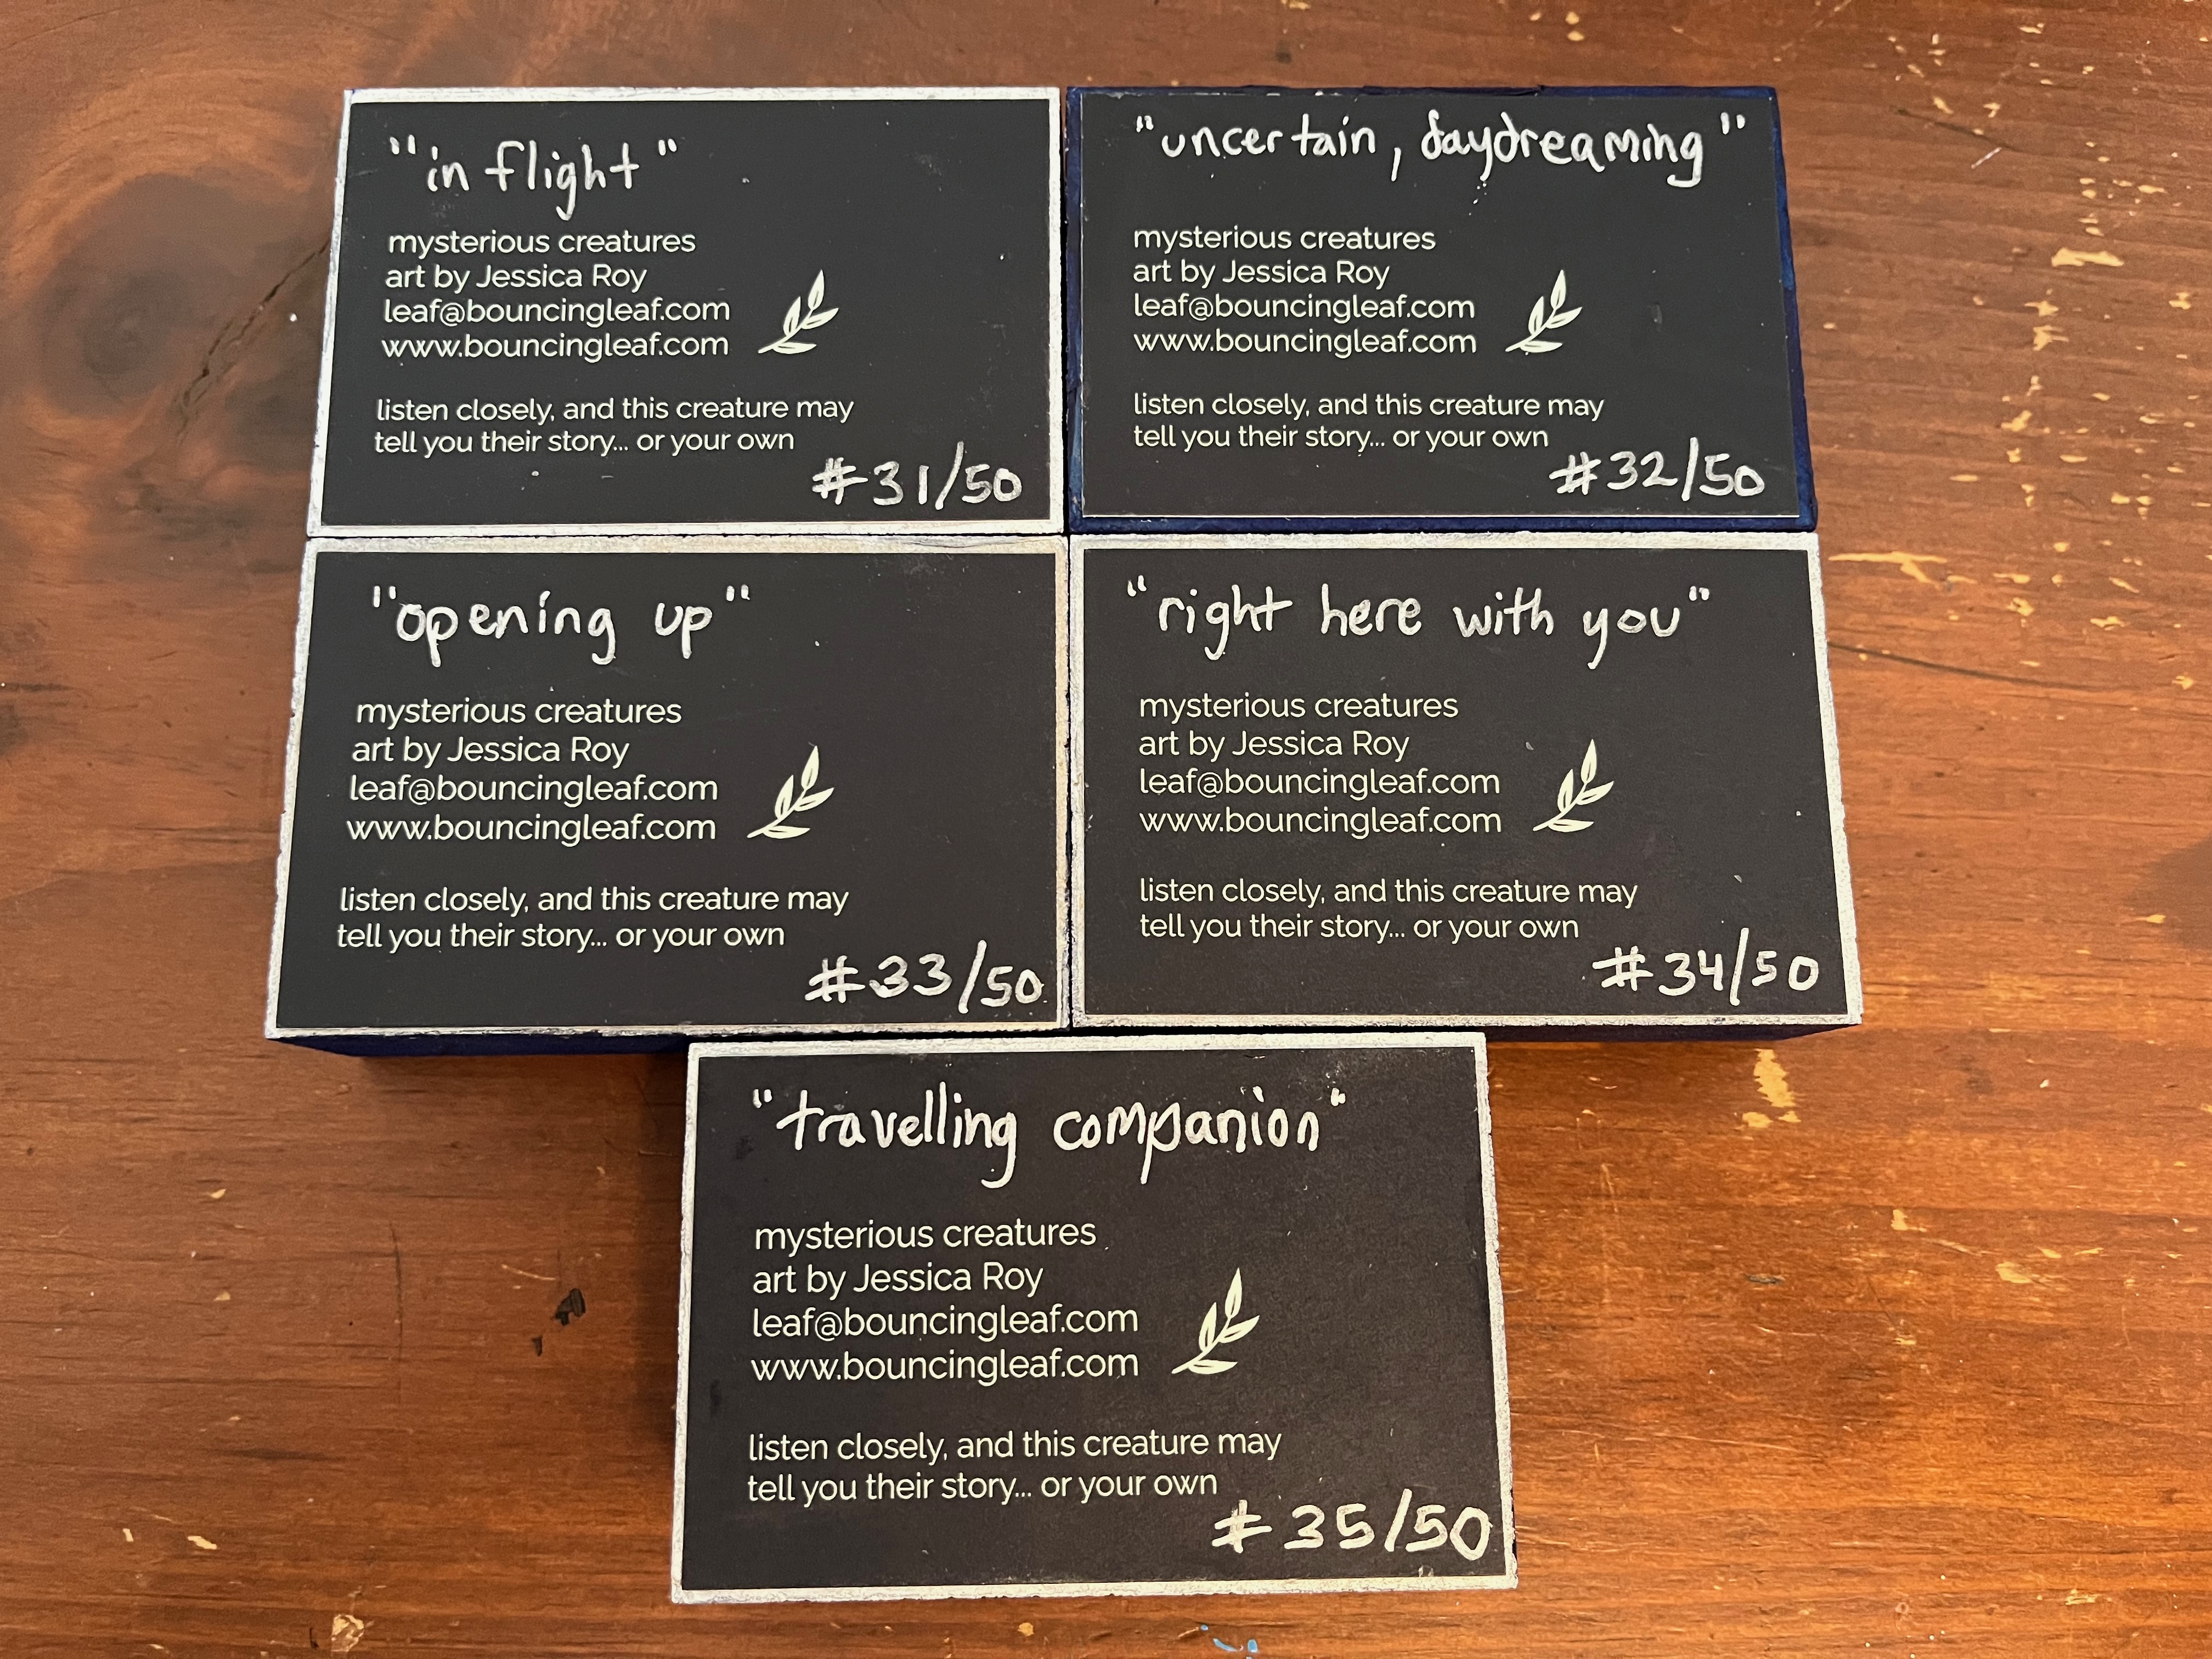 "in flight"
mysterious creatures
art by Jessica Roy
leaf@bouncingleaf.com
www.bouncingleaf.com
listen closely, and this creature may
tell you their story... or your own
#31/50
"uncertain, daydreaming"
mysterious creatures
art by Jessica Roy
leaf@bouncingleaf.com
www.bouncingleaf.com
listen closely, and this creature may
tell you their story... or your own
#32/50
"opening up"
mysterious creatures
art by Jessica Roy
leaf@bouncingleaf.com
www.bouncingleaf.com
listen closely, and this creature may
tell you their story... or your own
#33/50
"right here with you"
mysterious creatures
art by Jessica Roy
leaf@bouncingleaf.com
www.bouncingleaf.com
listen closely, and this creature may
tell you their story... or your own
#34/50
"travelling companion"
mysterious creatures
art by Jessica Roy
leaf@bouncingleaf.com
www.bouncingleaf.com
listen closely, and this creature may
tell you their story... or your own
#35/50